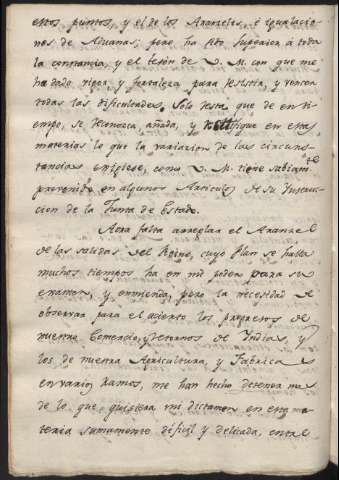 estos puntos, y el de los Aranzeles, è igualacio
nes de Aduanas; pero ha sido superior à toda
la constancia, y el tesón de V. M. con que me
ha dado vigor y fortaleza para resistir, y vencer
todas las dificultades. Solo resta que de en ti
empo, se reconozca añada, y rectifique en estas
materias lo que la variacion de las circuns
tancias exigiese, como V. M. tiene sabiamte
prevenido en algunos Articulos de su Instruc
cion de la Junta de Estado.
Aora falta arreglar el Aranzel
de las salidas del Reyno, cuyo Plan se halla
muchos tiempos ha en mi poder para su
examen, y enmienda, pero la necesidad de
observar para el acierto los progresos de
nuestro Comercio, y retornos de Indias, y
los de nuestra Agricultura, y Fabricas
en varios ramos, me han hecho detener mas
de lo que quisiera mi dictamen en esta ma
teria sumamente dificil y delicada, entre